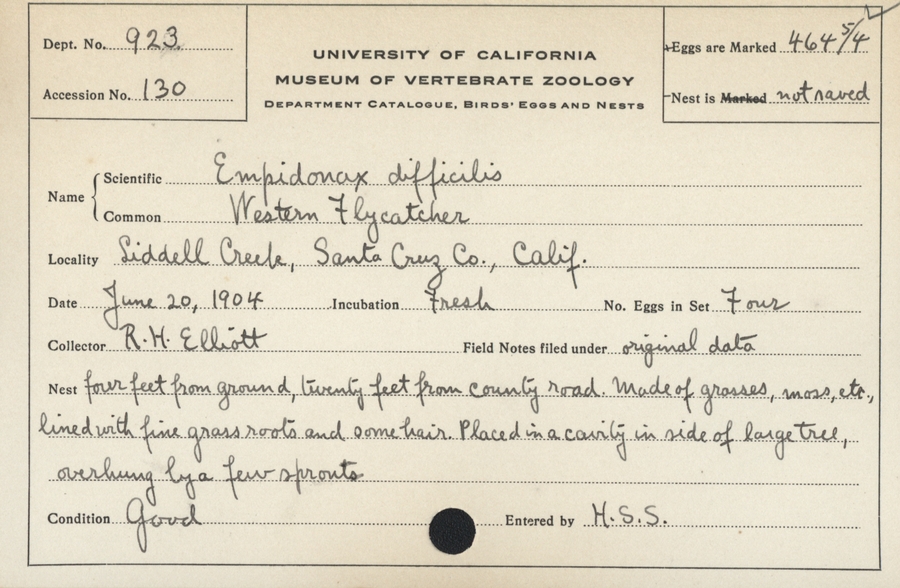 Dept. No. 923
Accession No. 130
UNIVERSITY OF CALIFORNIA
MUSEUM OF VERTEBRATE ZOOLOGY
DEPARTMENT CATALOGUE, BIRDS' EGGS AND NESTS
Eggs are Marked 464 5/4
Nest is Marked not saved
Name { Scientific Empidonax difficilis
Common Western Flycatcher
Locality Liddell Creek, Santa Cruz Co., Calif.
Date June 20, 1904 Incubation Fresh No. Eggs in Set Four
Collector R.H. Elliott Field Notes filed under original data
Nest four feet from ground, twenty feet from county road. Made of grasses, moss, etc.,
lined with fine grass roots and some hair. Placed in a cavity in side of large tree,
overhung by a few sprouts
Condition Good Entered by H.S.S.